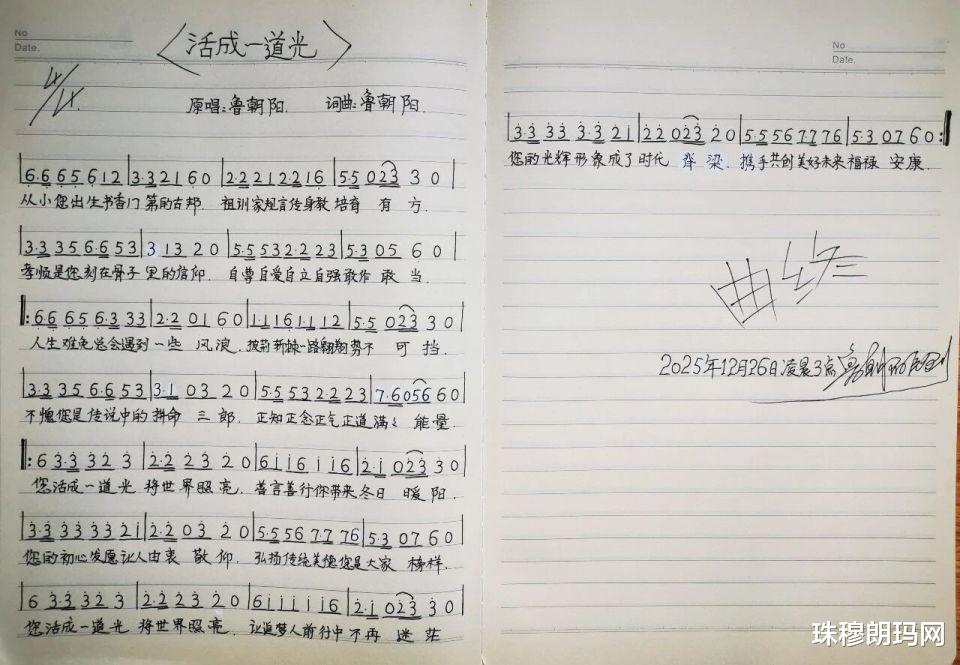 No
Date.
〈活成一道光〉
4/4
原唱:鲁朝阳. 词曲:鲁朝阳.
|6·6 6 5 6 1 2|3·3 2 1 6 0|2·2 2 1 2 2 1 6|5·5 0 2 3 3 0|
从小您出生书香门第的古邦. 祖训家规言传身教培育有方.
|3·3 3 5 6·6 5 3|3 1 3 2 0|5·5 5 3 2·2 2 3|5·3 0 5 6 0|
孝顺是您刻在骨子里的信仰. 自尊自爱自立自强敢作敢当.
‖:6·6 6 5 6·3 3 3|2·2 0 1 6 0|1·1 1 6 1·1 1 2|5·5 0 2 3 3 0|
人生难免总会遇到一些风浪. 披荆斩棘一路翱翔势不可挡.
|3·3 3 5 6·6 5 3|3·1 0 3 2 0|5·5 5 3 2·2 2 3|7·6 0 5 6 6 0|
不愧您是传说中的拼命三郎. 正知正念正气正道满々能量.
‖:6 3·3 3 2 3|2·2 2 3 2 0|6 i i 6 i i 6|2·i 0 2 3 3 0|
您活成一道光 将世界照亮. 善言善行你带来冬日暖阳.
|3·3 3 3 3 3 2 i|2·2 0 3 2 0|5·5 5 6 7·7 7 6|5·3 0 7 6 0|
您的初心发愿让人由衷敬仰. 弘扬传统美德您是大家榜样.
|6 3·3 3 2 3|2·2 2 3 2 0|6 i i i i 6|2·i 0 2 3 3 0|
您活成一道光 将世界照亮. 让追梦人前行中不再迷茫
No
Date.
|3·3 3 3 3·3 2 1|2·2 0 2 3 2 0|5·5 5 6 7·7 7 6|5·3 0 7 6 0:‖
您的光辉形象成了时代脊梁. 携手共创美好未来福禄安康.
曲终
2025年12月26日凌晨3点
珠穆朗玛网